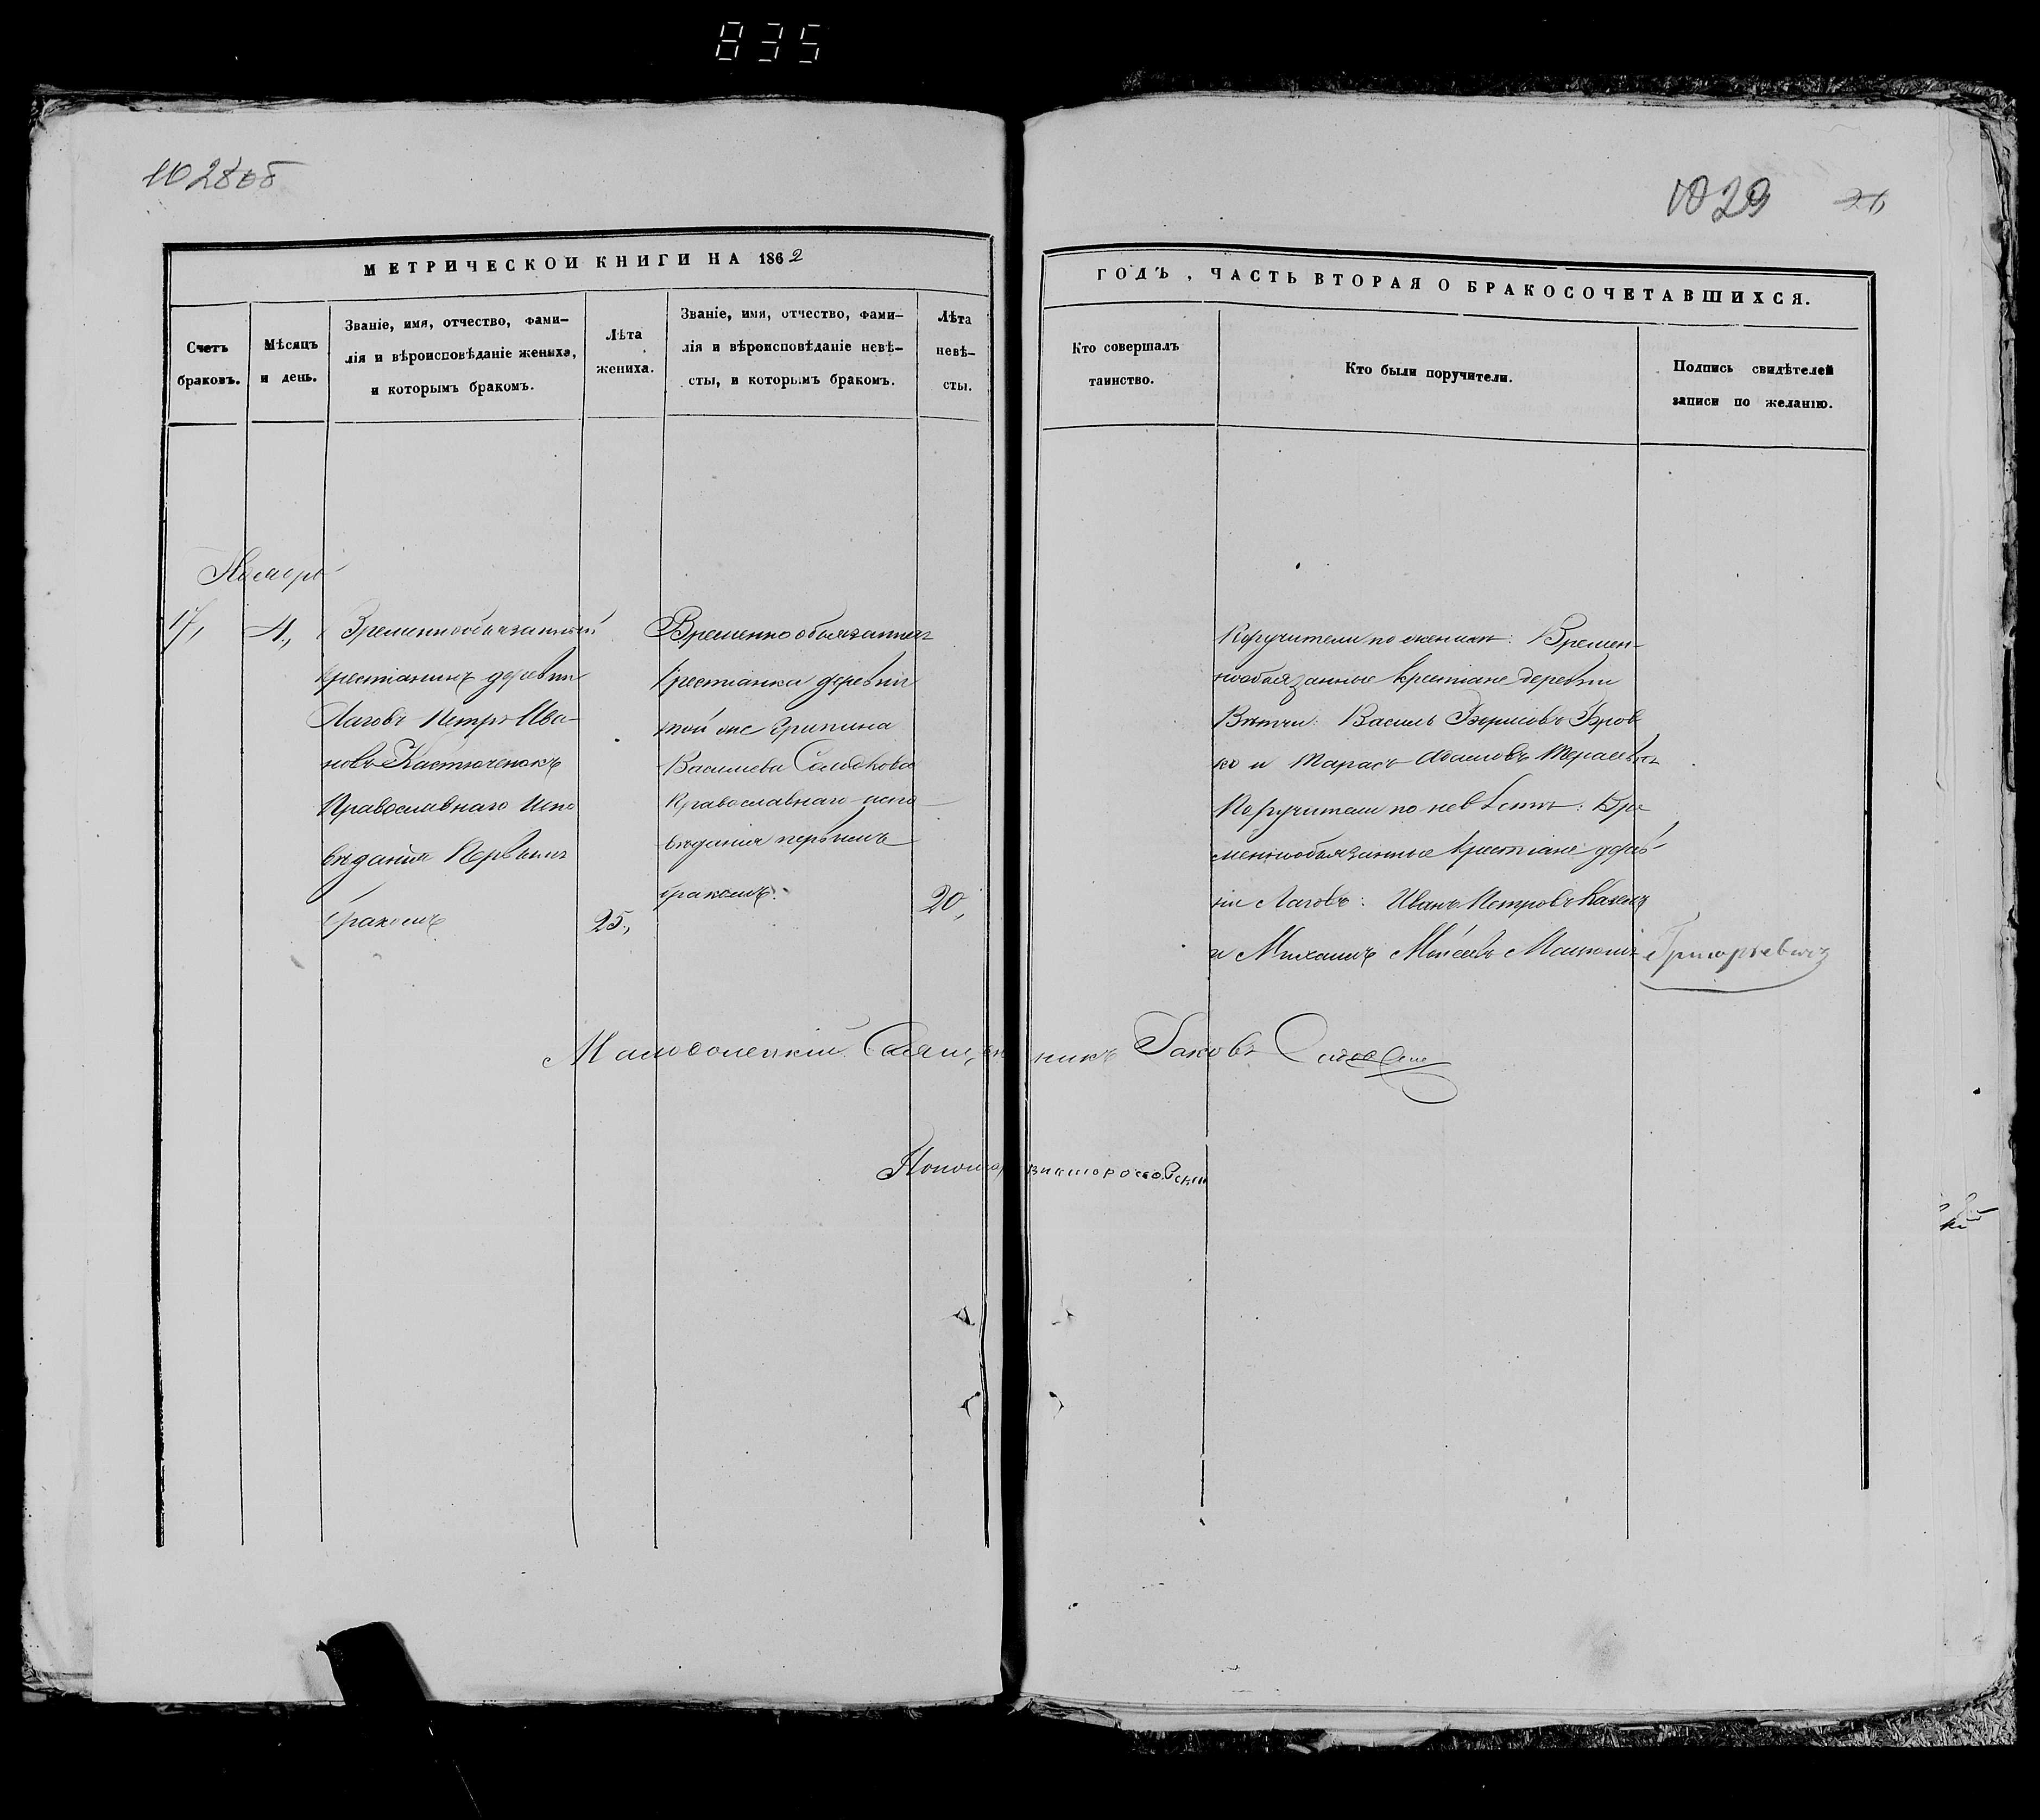 835
1028об
1029
МЕТРИЧЕСКОИ КНИГИ НА 1862
ГОДЪ, ЧАСТЬ ВТОРАЯ О БРАКОСОЧЕТАВШИХСЯ.
Счетъ
браковъ.
Мѣсяцъ
и день.
Званіе, имя, отчество, фами-
лія и вѣроисповѣданіе жениха,
и которымъ бракомъ.
Лѣта
жениха.
Званіе, имя, отчество, фами-
лія и вѣроисповѣданіе невѣ-
сты, и которымъ бракомъ.
Лѣта
невѣ-
сты.
Кто совершалъ
таинство.
Кто были поручители.
Подпись свидѣтелей
записи по желанію.
Ноябрь
17,
4.,
Временнообязанный
крестіанинъ деревни
Лаговъ Петръ Ива-
новъ Кастюченокъ
Православнаго испо
вѣданія Первымъ
бракомъ
25.,
Временнообязанная
крестіанка деревни
той же Грипина
Василіева
Православнаго испо
вѣданія первымъ
бракомъ.
20,
Поручители по женихѣ: Времен-
нообязанные крестіане деревни
Василь Борисовъ Бров
ко и Тарасъ
Поручители по невѣстѣ: Вре
меннообязанные крестіане дерев
ни Лаговъ: Иванъ Петровъ
и Михаилъ Моисеевъ
Григорьевичъ
Священникъ Іаковъ
Пономарь